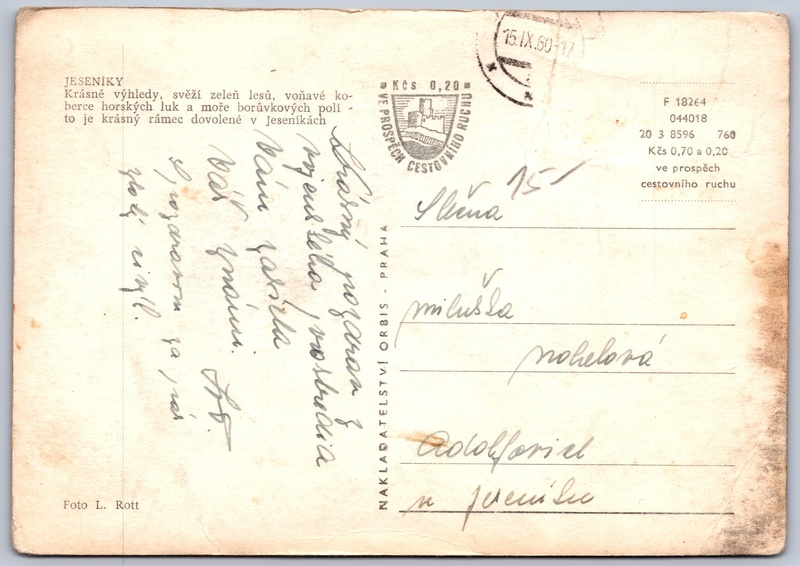 JESENÍKY
Krásné výhledy, svěží zeleň lesů, voňavé ko-
berce horských luk a moře borůvkových polí -
to je krásný rámec dovolené v Jeseníkách
Krásný pozdrav z
vojenského prostředia
Vám zasiela
Váš známi.
S pozdravom za
Foto L. Rott
NAKLADATELSTVÍ ORBIS - PRAHA
Kčs 0,20
VE PROSPĚCH CESTOVNÍHO RUCHU
15.IX.60-17
F 18264
044018
20 3 8596 760
Kčs 0,70 a 0,20
ve prospěch
cestovního ruchu
15-
Slečna
Miluška
Nohelová
Adolfovice
u Jeseníku